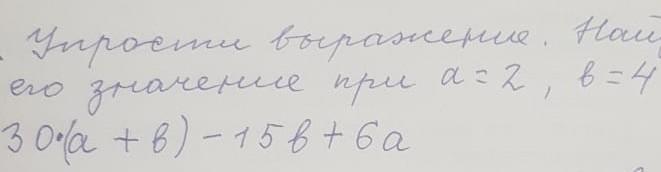 Упрости выражение. Най
его значение при a = 2, b = 4
30·(a + b) - 15b + 6a